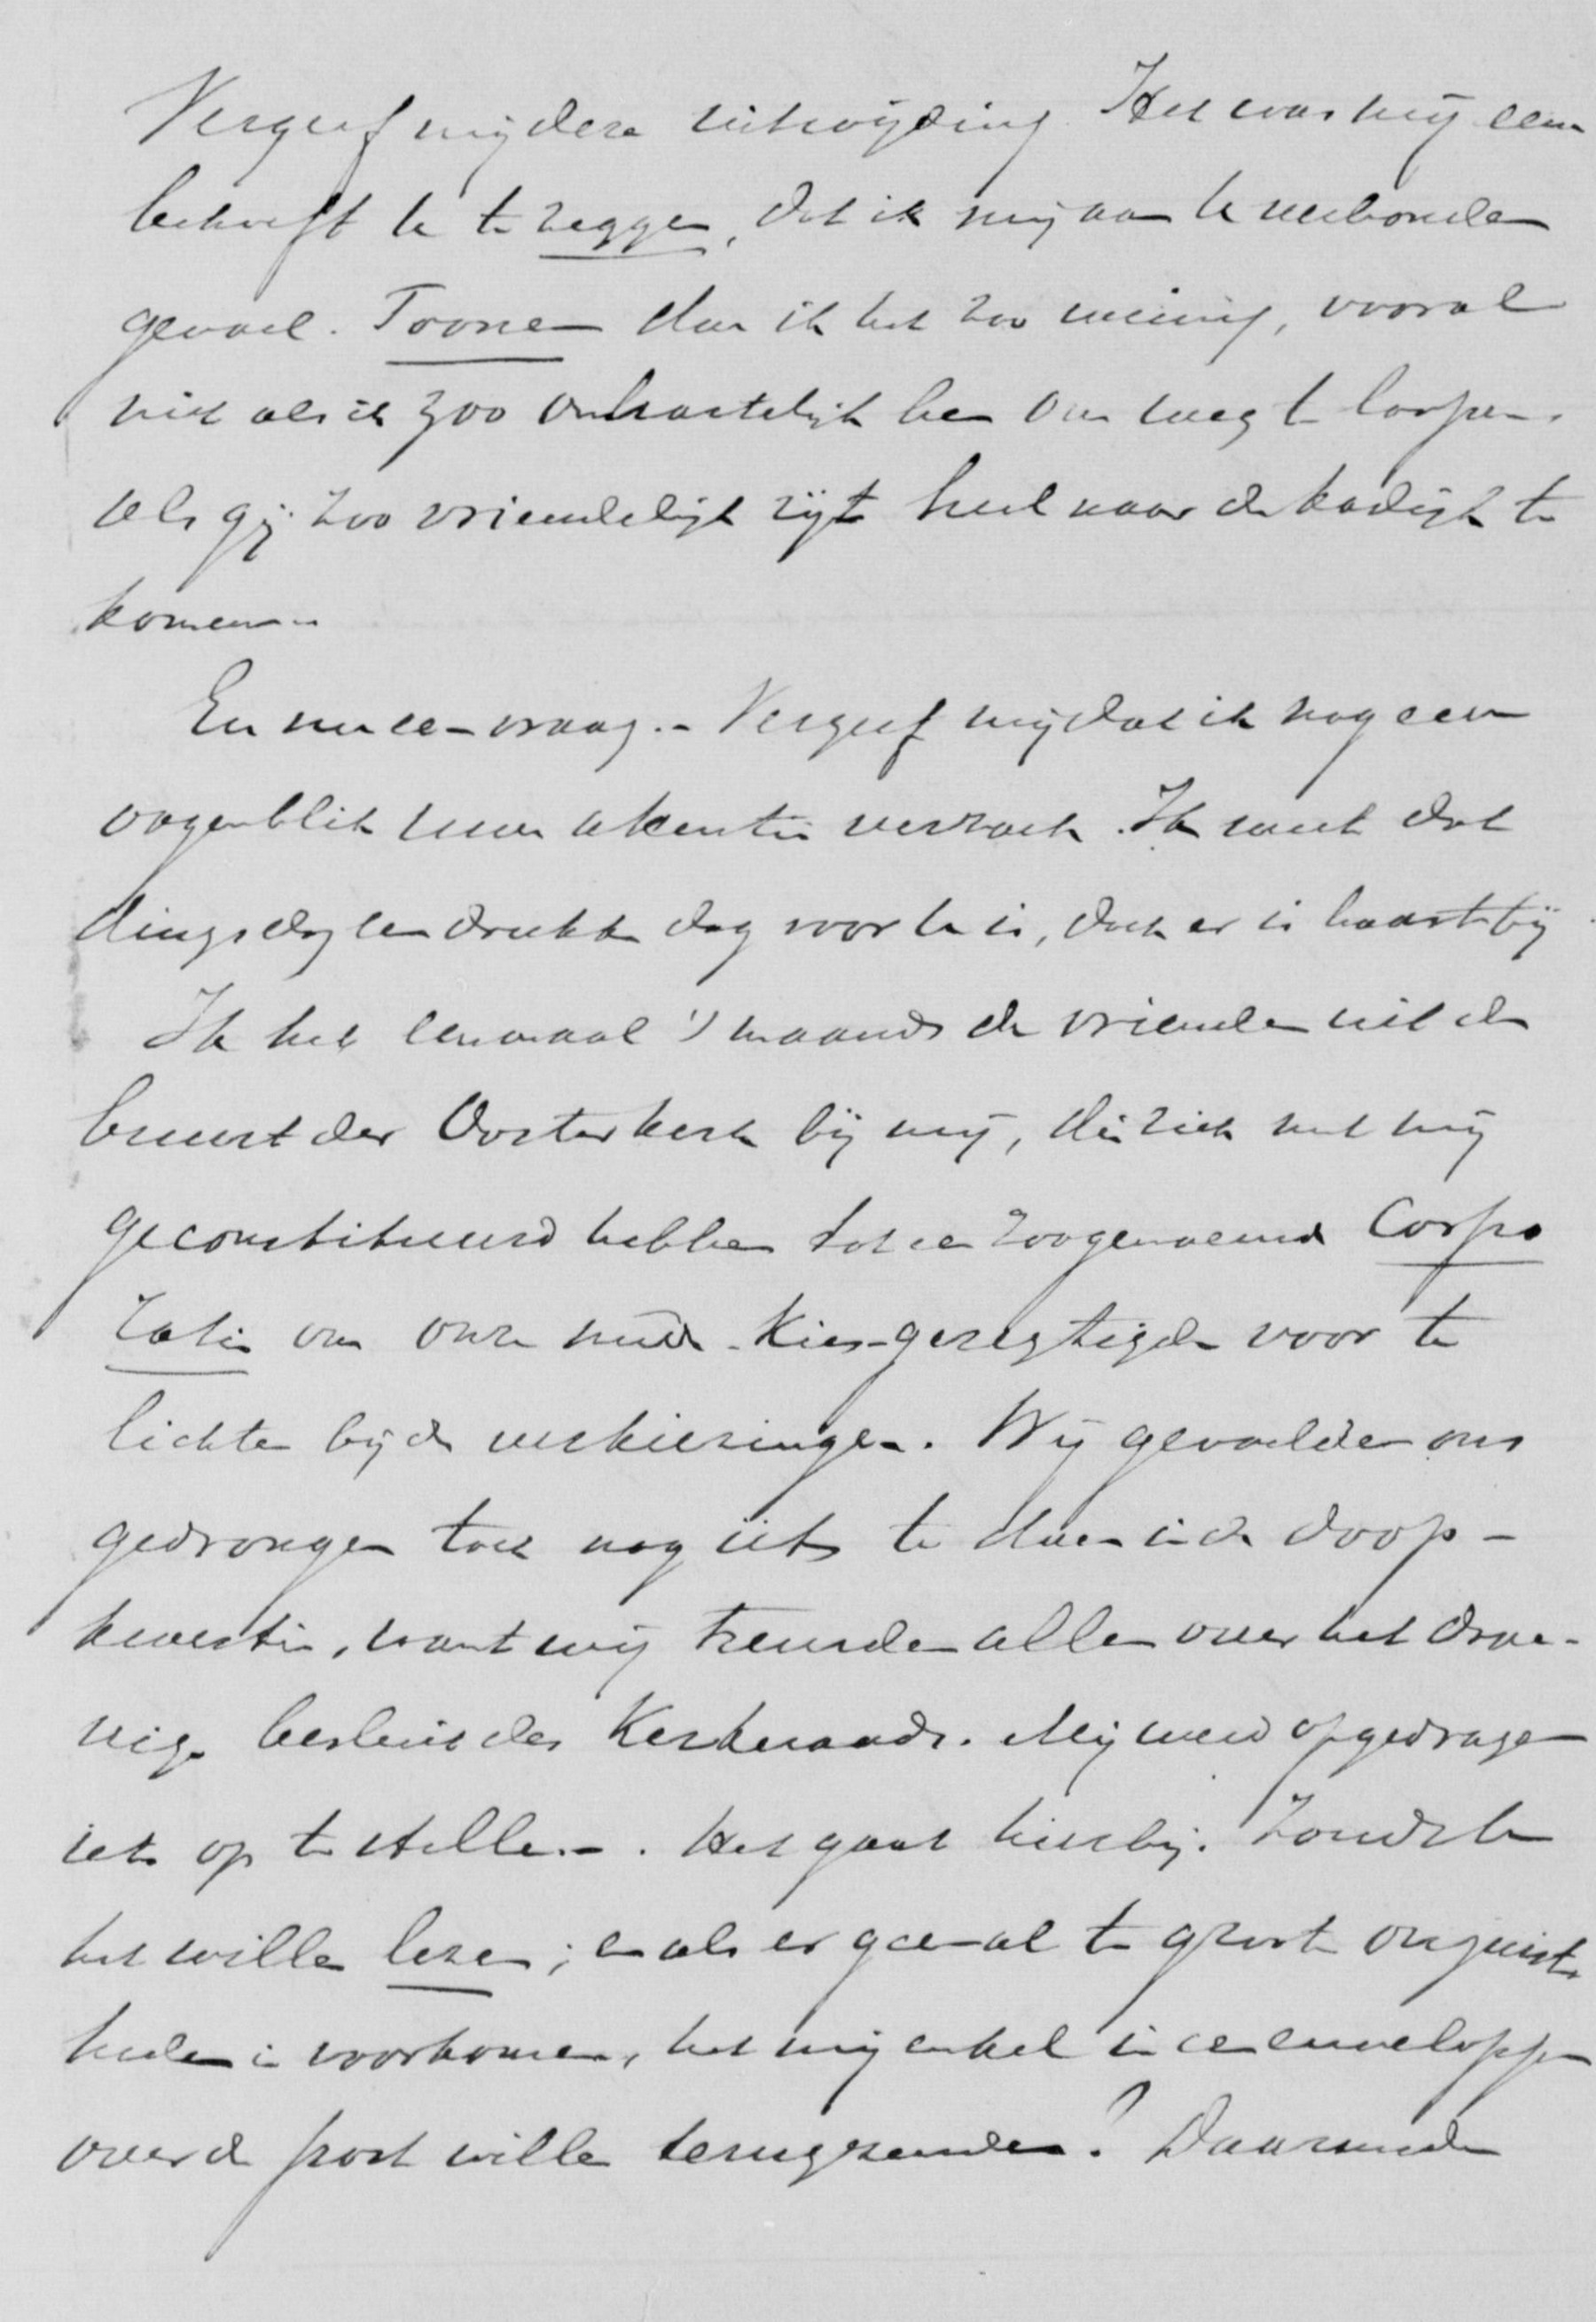 Vergeef mij deze uitwijding. Het was mij een
behoefte U te zeggen, dat ik mij aan U verbonden
gevoel. Toonen doe ik het zoo weinig, vooral
niet als ik zoo onhartelijk ben om weg te loopen,
als gij zoo vriendelijk zijt heel naar de kadijk te
komen.
En nu een vraag. - Vergeef mij dat ik nog een
oogenblik uwe attentie verzoek. Ik weet dat
dingsdag een drukke dag voor U is, doch er is haast bij
Ik heb eenmaal 's maands de vrienden uit de
buurt der Oosterkerk bij mij, die zich met mij
geconstitueerd hebben tot een zoogenaamd Corpo
ratie om onze mede-Kies-geregtigden voor te
lichten bij de verkiezingen. Wij gevoelden ons
gedrongen toch nog iets te doen in de doop-
kwestie, want wij treurden allen over het droe-
vige besluit des Kerkeraads. Mij werd opgedragen
iets op te stellen. - . Het gaat hierbij. Zoudt U
het willen lezen; en als er geen al te groote onjuist
heden in voorkomen, het mij enkel in een enveloppe
over de post willen terugzenden? Daarmede